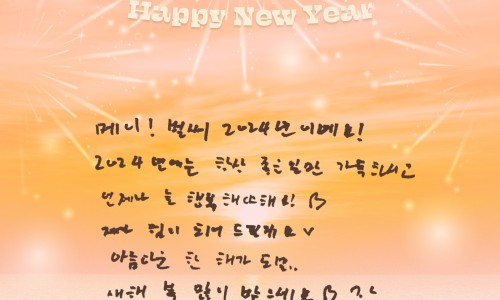 Happy New Year
메이! 벌써 2024년이예요!
2024년에는 항상 좋은일만 가득하시고
언제나 늘 행복해
힘이 되어 드릴게요
아름다운 한 해가 되길..
새해 복 많이 받으세요